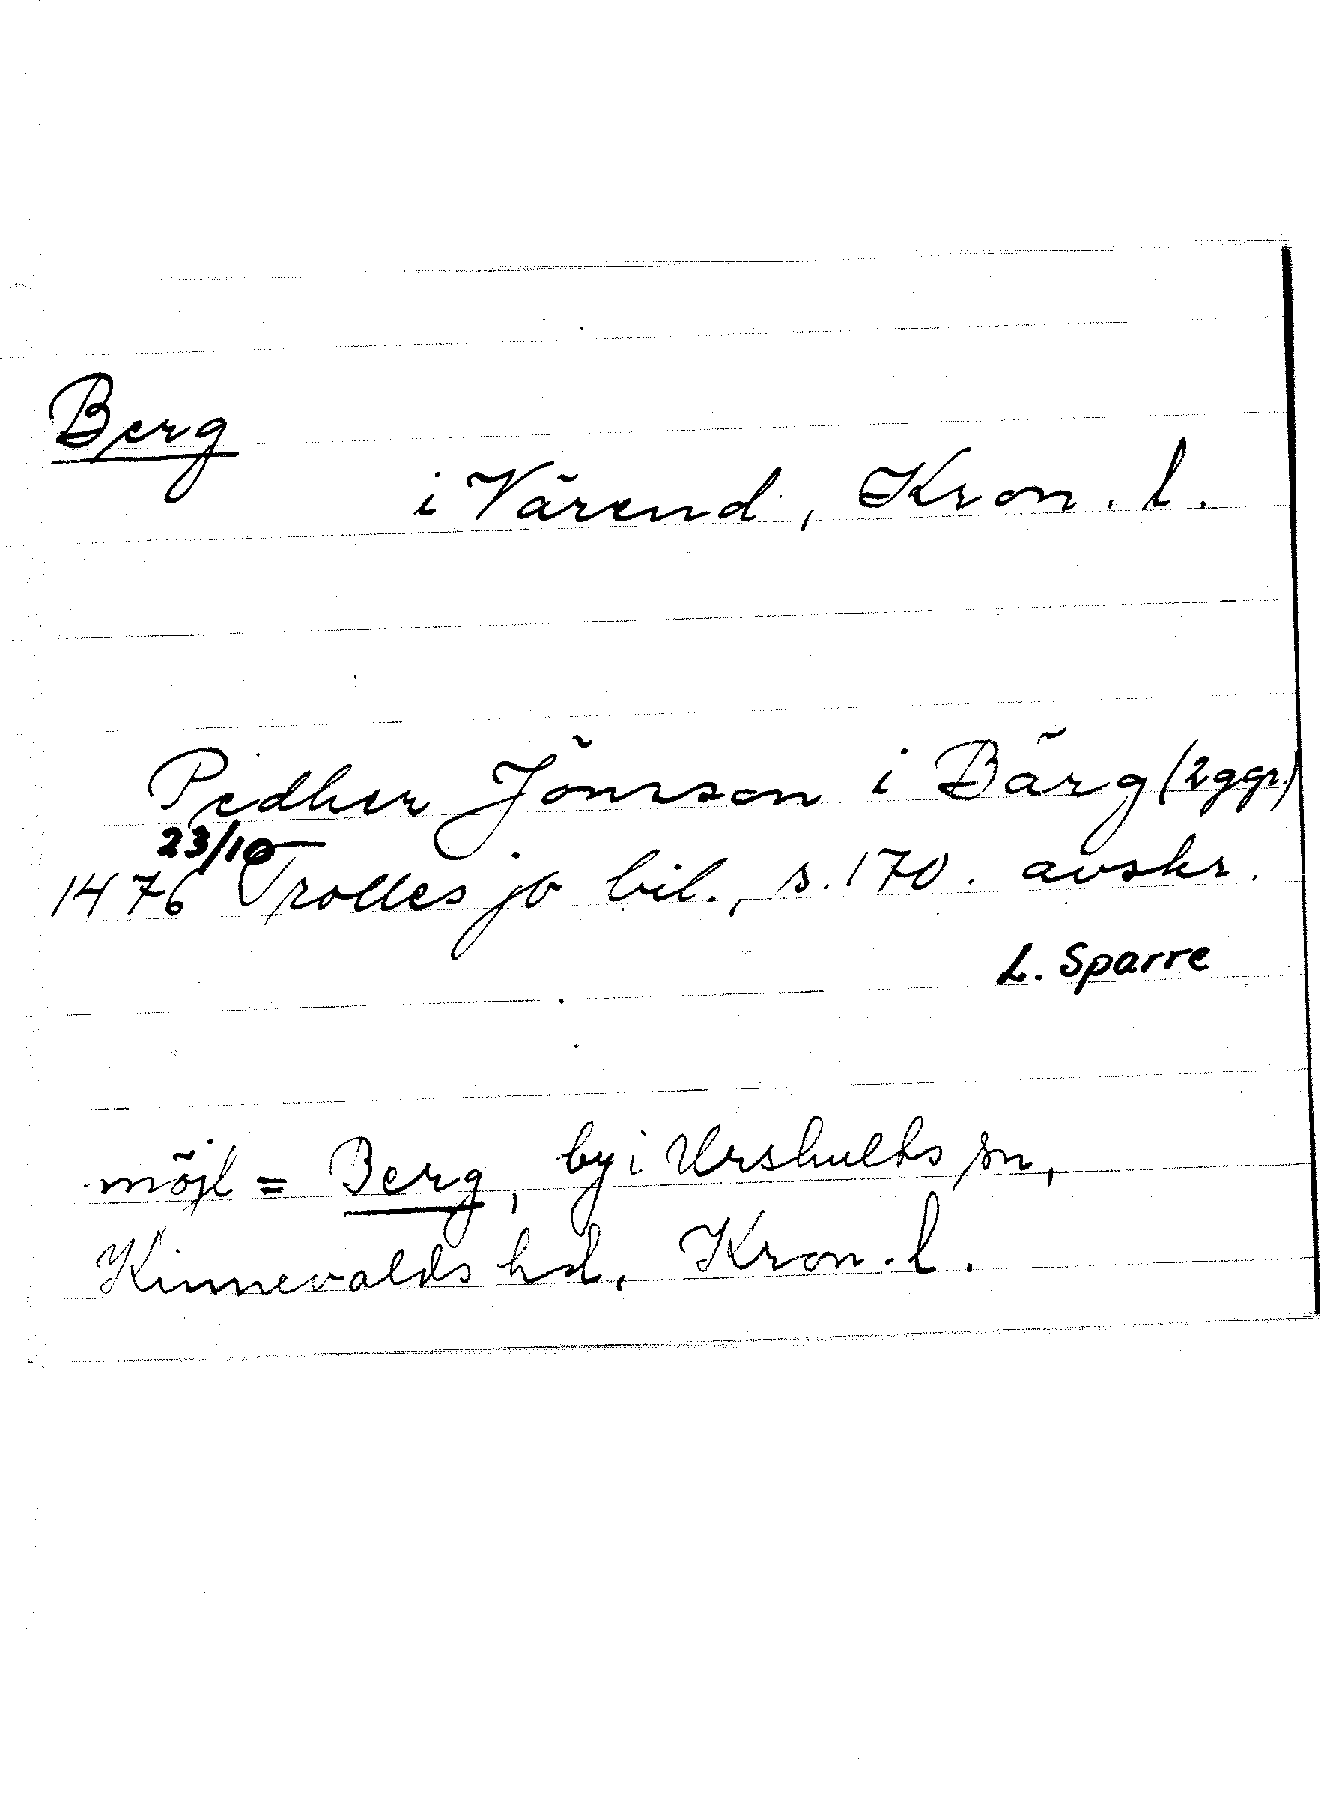 Berg
i Värend, Kron. l.
Pedher Jönsson i Bärg (2ggr)
23/10
1476 Trolles jb bil., s. 170. avskr.
L. Sparre
möjl = Berg, by i Urshults sn,
Kinnevalds hd, Kron. l.